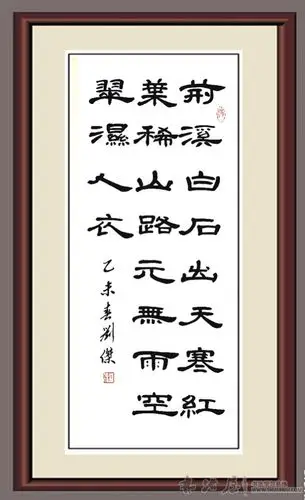 荆溪白石出天寒红
葉稀山路元無雨空
翠濕人衣
乙未春劉傑